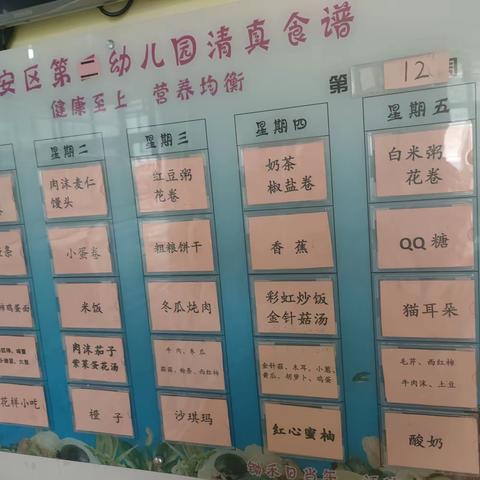 安区第二幼儿园清真食谱
健康至上 营养均衡
第 12 周
星期二
星期三
星期四
星期五
肉沫麦仁
馒头
红豆粥
花卷
奶茶
椒盐卷
白米粥
花卷
小蛋卷
粗粮饼干
香蕉
QQ糖
鸡蛋面
米饭
冬瓜炖肉
彩虹炒饭
金针菇汤
猫耳朵
肉沫茄子
紫菜蛋花汤
牛肉、冬瓜
蘑菇、粉条、西红柿
金针菇、木耳、小葱、
黄瓜、胡萝卜、鸡蛋
毛芹、西红柿
牛肉沫、土豆
花样小吃
橙子
沙琪玛
红心蜜柚
酸奶
锄禾日当午